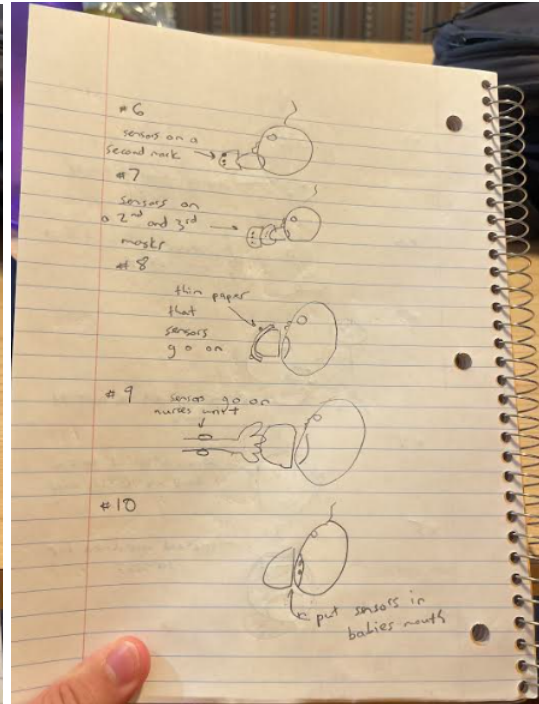 #6
sensors on a
second mask
#7
sensors on
a 2nd and 3rd
masks
#8
thin paper
that
sensors
go on
#9
sensors go on
nurses wrist
#10
put sensors in
babies mouth